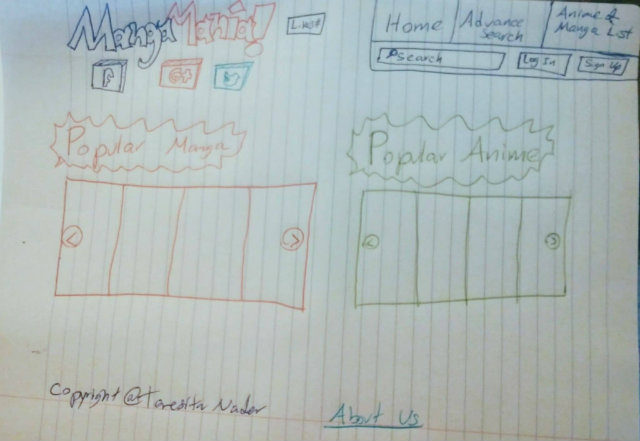 MangaMania!
Like
Home
Advance
Search
Anime &
Manga List
Search
Log In
Sign Up
f
G+
Popular Manga
Popular Anime
<
>
<
>
Copyright @
Nader
About Us